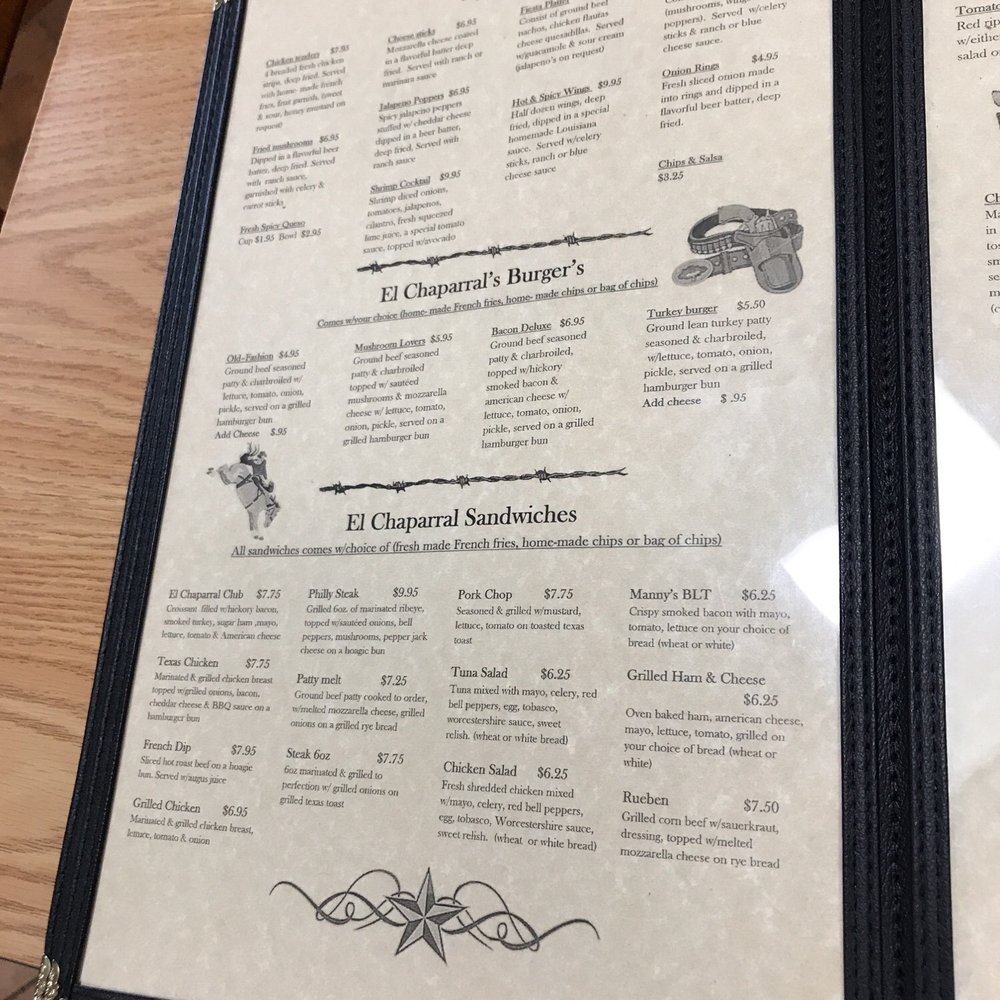 Chicken tenders $7.95
4 breaded fresh chicken
strips, deep fried. Served
with home-made french
fries, fruit garnish, (sweet
& sour, honey mustard on
request)
Fried mushrooms $6.95
Dipped in a flavorful beer
batter, deep fried. Served
with ranch sauce,
garnished with celery &
carrot sticks
Fresh Spicy Queso
Cup $1.95 Bowl $2.95
Cheese sticks $6.95
Mozzarella cheese coated
in a flavorful batter deep
fried. Served with ranch or
marinara sauce
Jalapeno Poppers $6.95
Spicy jalapeno peppers
stuffed w/ cheddar cheese
dipped in a beer batter,
deep fried. Served with
ranch sauce
Shrimp Cocktail $9.95
Shrimp diced onions,
tomatoes, jalapenos,
cilantro, fresh squeezed
lime juice, a special tomato
sauce, topped w/avocado
Fiesta Platter
Consist of ground beef
nachos, chicken flautas
cheese quesadillas. Served
w/guacamole & sour cream
(jalapeno's on request)
Hot & Spicy Wings $9.95
Half dozen wings, deep
fried, dipped in a special
homemade Louisiana
sauce. Served w/celery
sticks, ranch or blue
cheese sauce
(mushrooms, wings
poppers). Served w/celery
sticks & ranch or blue
cheese sauce.
Onion Rings $4.95
Fresh sliced onion made
into rings and dipped in a
flavorful beer batter, deep
fried.
Chips & Salsa
$3.25
El Chaparral's Burger's
Comes w/your choice (home- made French fries, home- made chips or bag of chips)
Old-Fashion $4.95
Ground beef seasoned
patty & charbroiled w/
lettuce, tomato, onion,
pickle, served on a grilled
hamburger bun
Add Cheese $.95
Mushroom Lovers $5.95
Ground beef seasoned
patty & charbroiled
topped w/ sautéed
mushrooms & mozzarella
cheese w/ lettuce, tomato,
onion, pickle, served on a
grilled hamburger bun
Bacon Deluxe $6.95
Ground beef seasoned
patty & charbroiled,
topped w/hickory
smoked bacon &
american cheese w/
lettuce, tomato, onion,
pickle, served on a grilled
hamburger bun
Turkey burger $5.50
Ground lean turkey patty
seasoned & charbroiled,
w/lettuce, tomato, onion,
pickle, served on a grilled
hamburger bun
Add cheese $ .95
El Chaparral Sandwiches
All sandwiches comes w/choice of (fresh made French fries, home-made chips or bag of chips)
El Chaparral Club $7.75
Croissant filled w/hickory bacon,
smoked turkey, sugar ham ,mayo,
lettuce, tomato & American cheese
Texas Chicken $7.75
Marinated & grilled chicken breast
topped w/grilled onions, bacon,
cheddar cheese & BBQ sauce on a
hamburger bun
French Dip $7.95
Sliced hot roast beef on a hoagie
bun. Served w/augus juice
Grilled Chicken $6.95
Marinated & grilled chicken breast,
lettuce, tomato & onion
Philly Steak $9.95
Grilled 6oz. of marinated ribeye,
topped w/sautéed onions, bell
peppers, mushrooms, pepper jack
cheese on a hoagie bun
Patty melt $7.25
Ground beef patty cooked to order,
w/melted mozzarella cheese, grilled
onions on a grilled rye bread
Steak 6oz $7.75
6oz marinated & grilled to
perfection w/ grilled onions on
grilled texas toast
Pork Chop $7.75
Seasoned & grilled w/mustard,
lettuce, tomato on toasted texas
toast
Tuna Salad $6.25
Tuna mixed with mayo, celery, red
bell peppers, egg, tobasco,
worcestershire sauce, sweet
relish. (wheat or white bread)
Chicken Salad $6.25
Fresh shredded chicken mixed
w/mayo, celery, red bell peppers,
egg, tobasco, Worcestershire sauce,
sweet relish. (wheat or white bread)
Manny's BLT $6.25
Crispy smoked bacon with mayo,
tomato, lettuce on your choice of
bread (wheat or white)
Grilled Ham & Cheese
$6.25
Oven baked ham, american cheese,
mayo, lettuce, tomato, grilled on
your choice of bread (wheat or
white)
Rueben $7.50
Grilled corn beef w/sauerkraut,
dressing, topped w/melted
mozzarella cheese on rye bread
Tomato
Red rip
w/eithe
salad o
Ch
Ma
in
to
sm
se
m
(c